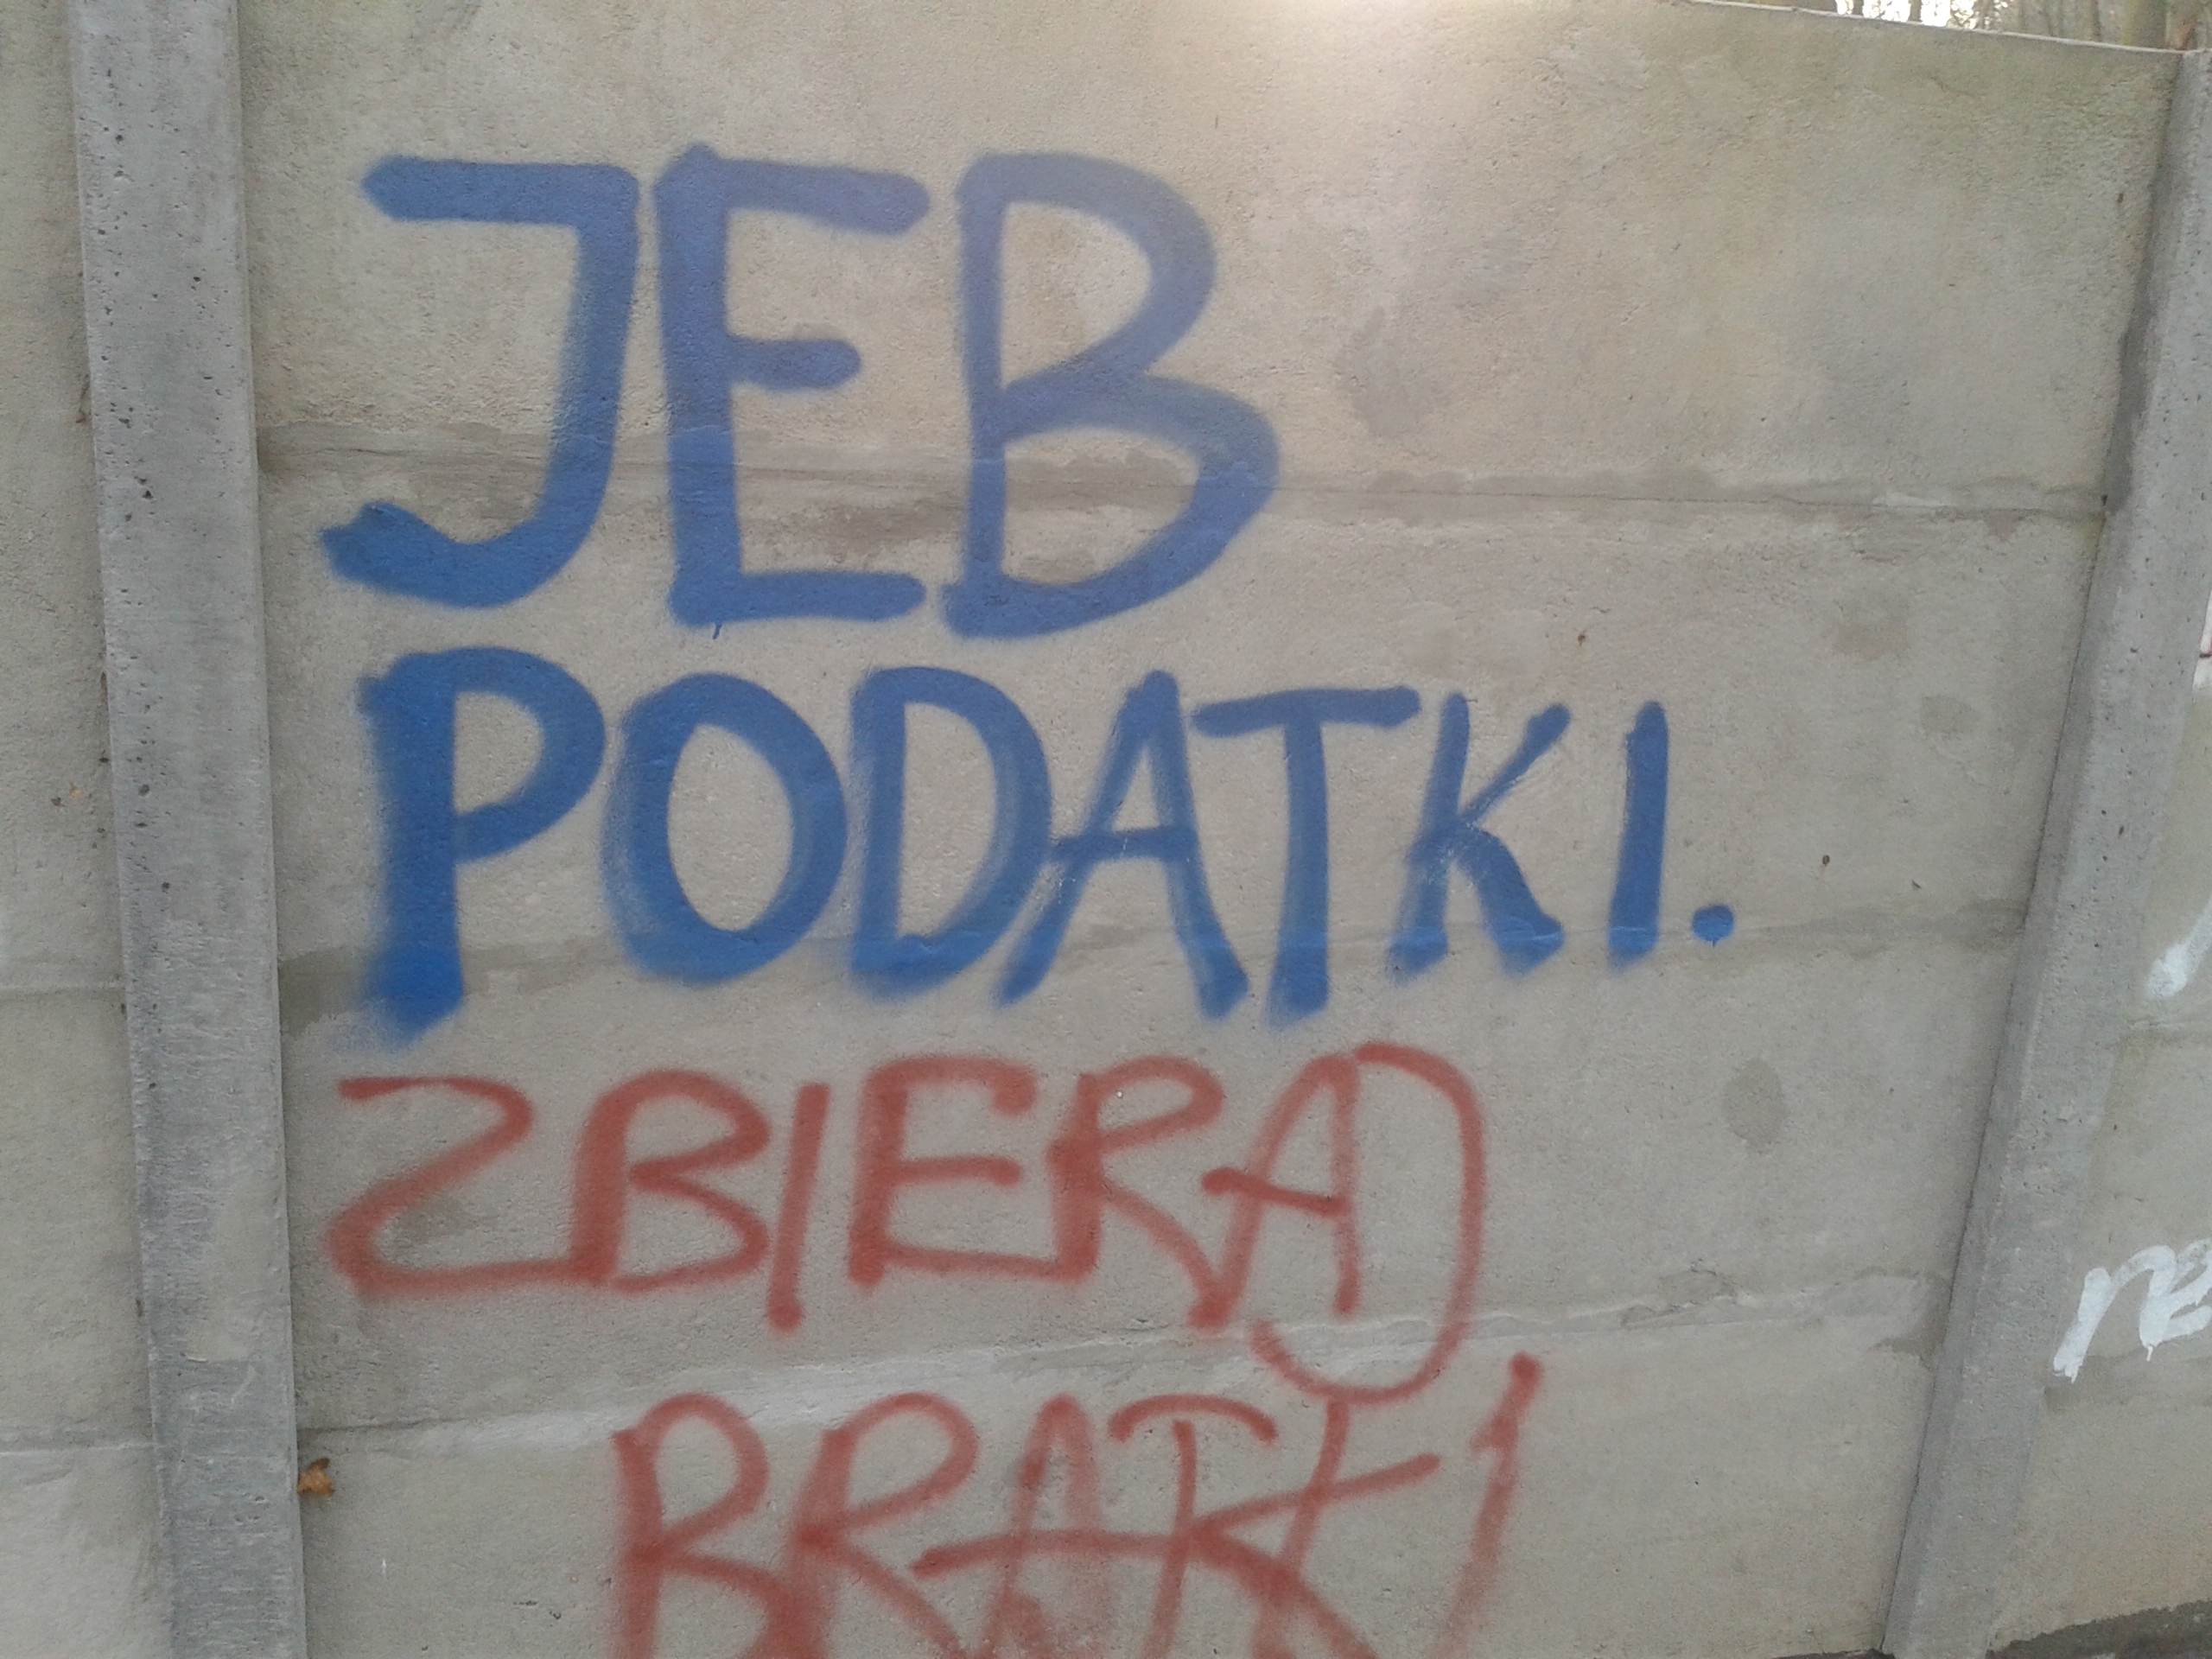 JEB
PODATKI.
ZBIERAJ
BRATKI